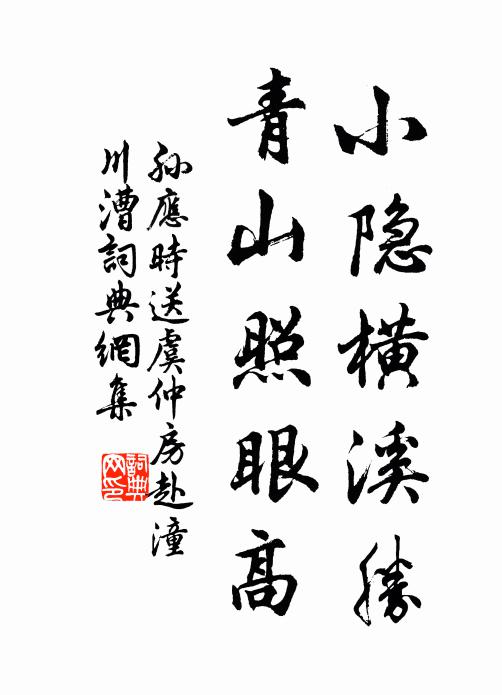 小隐横溪勝
青山照眼高
孙應時送虞仲房赴潼
川漕詞典網集
詞典網印